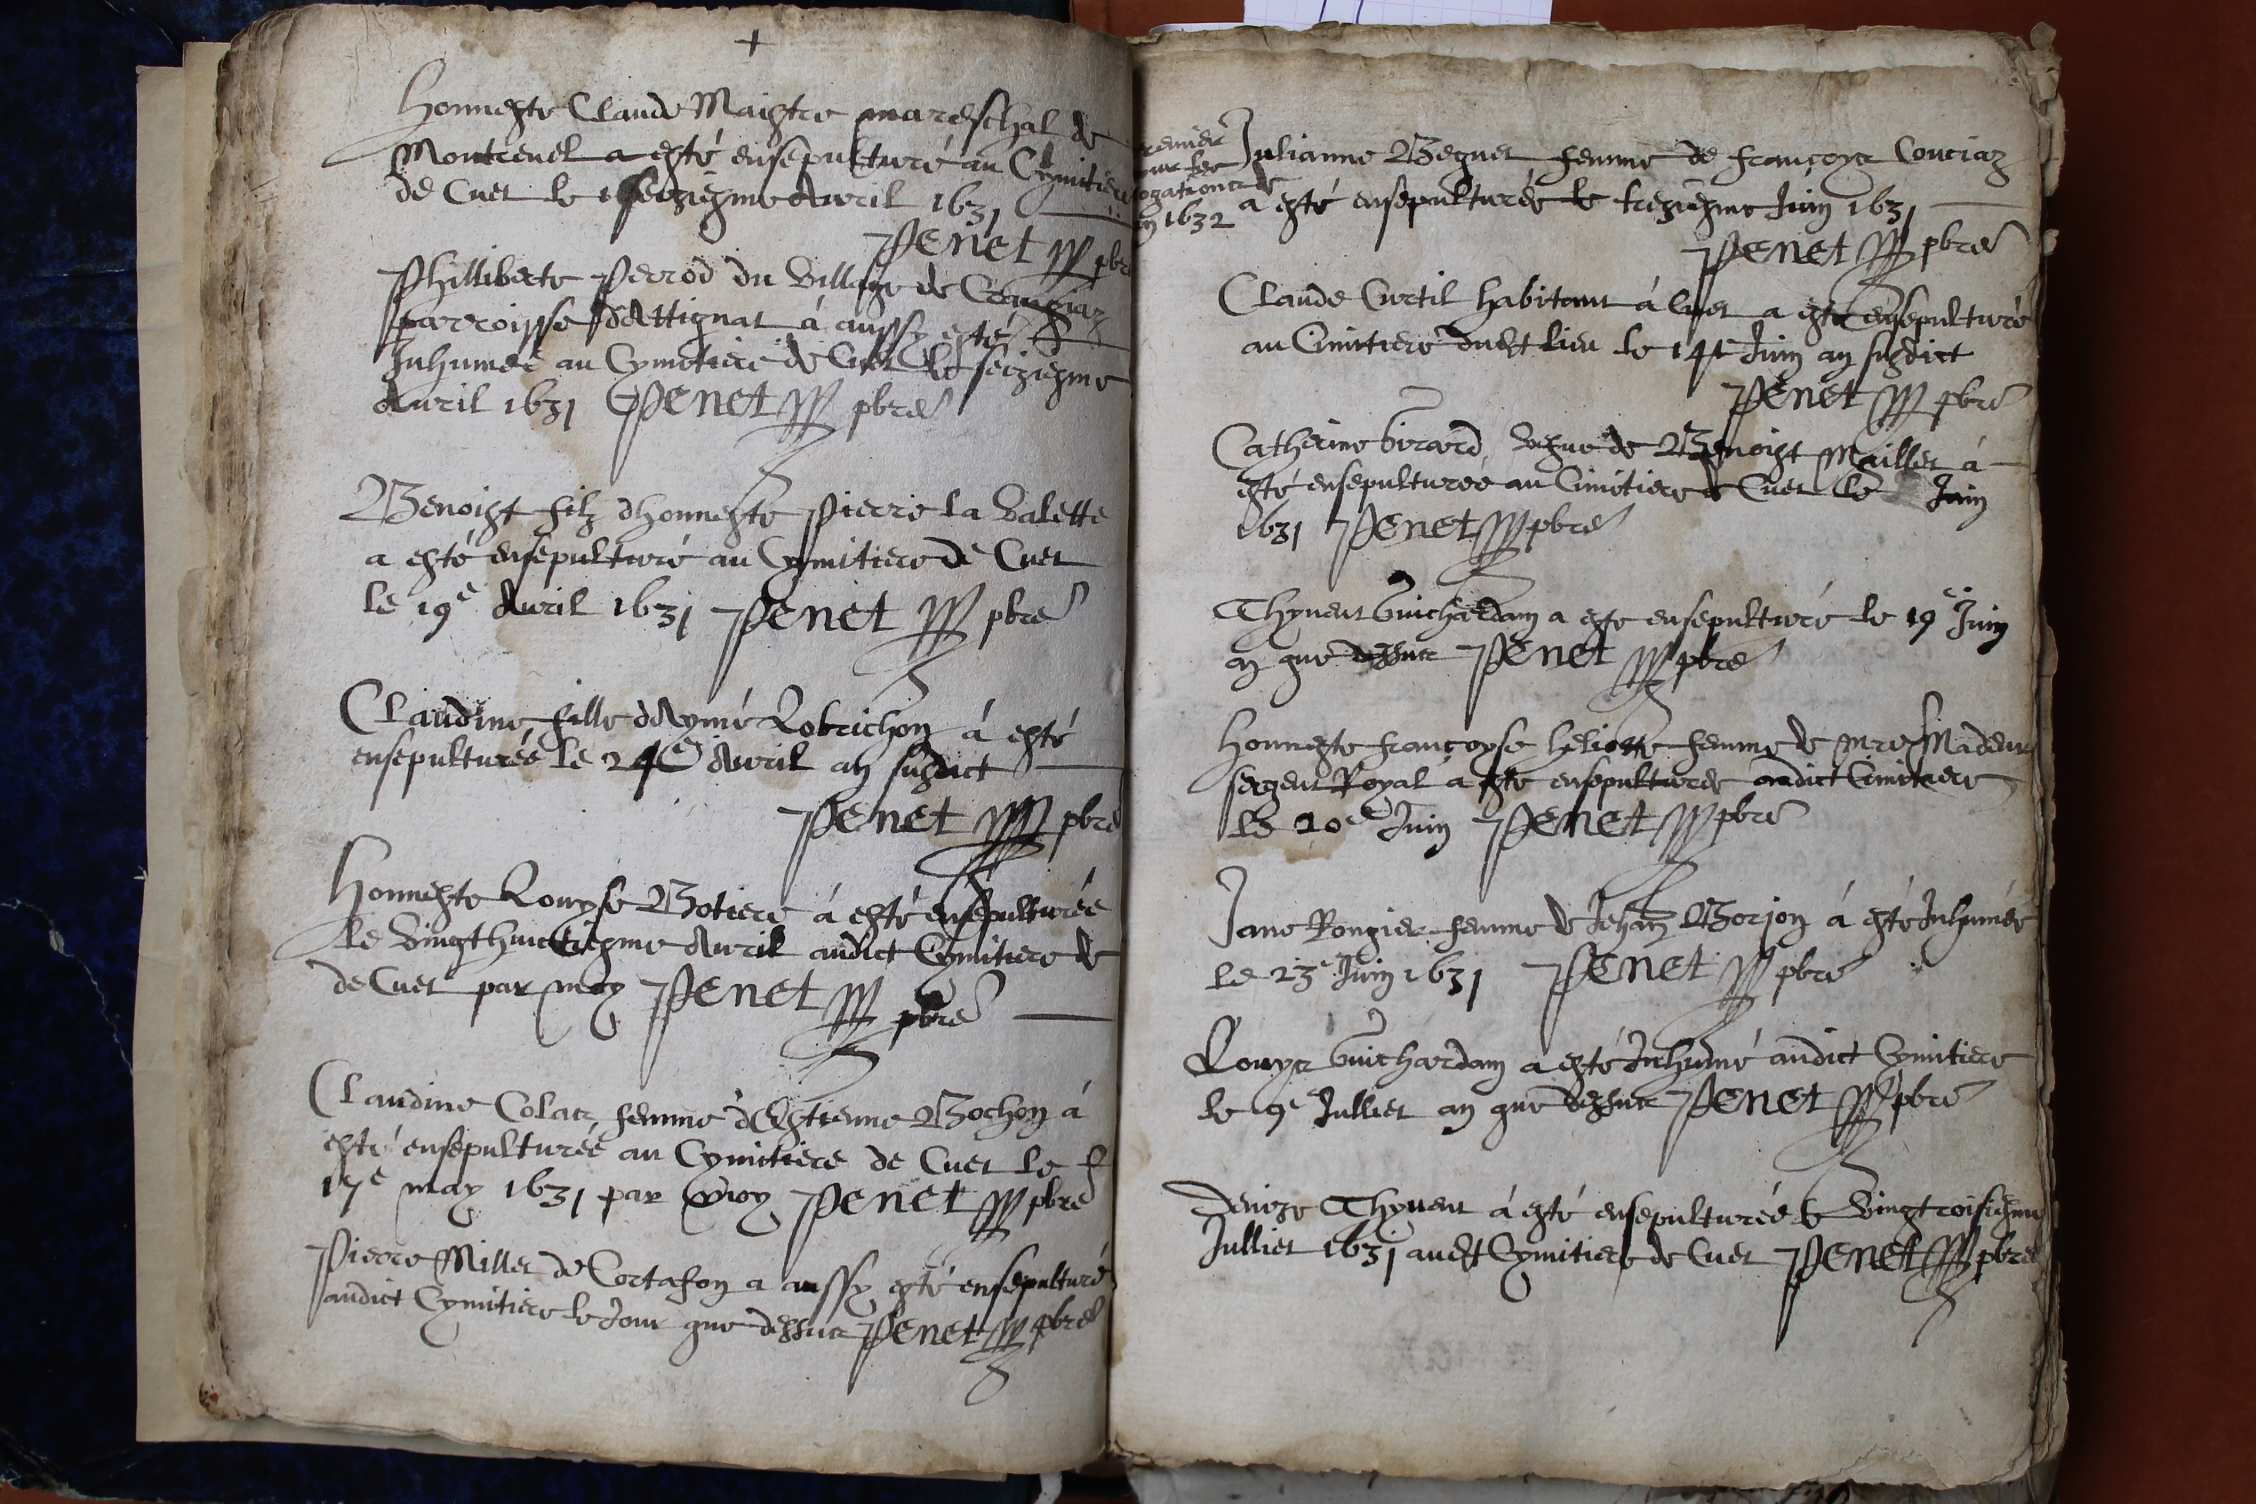 +
Honneste Claude Maistre mareschal de
Montrevel a esté ensepulturé au Cymitiere
de Cuet le seiziesme Avril 1631
Penet pbre
Philliberte Perrod du village de
parroisse d'Attignat á aussy esté
Inhumée au Cymitiere de Cuet le seiziesme
Avril 1631 Penet pbre
Benoist filz d'honneste Pierre la Valette
a esté ensepulturé au Cymitiere de Cuet
le 19e Avril 1631 Penet pbre
Claudine fille d'Aymé Robrichon á esté
ensepulturée le 24e Avril an susdict
Penet pbre
Honneste Louyse Botiere á esté ensepulturée
le vingthuictiesme Avril audict Cymitiere de
de Cuet par moy Penet pbre
Claudine Colas femme d'Estienne Bochon á
esté ensepulturée au Cymitiere de Cuet le
17e may 1631 par moy Penet pbre
Pierre Millet de Cortafon a aussy esté ensepulturé
audict Cymitiere le Jour que dessus Penet pbre
1632
Julianne Beguet femme de Françoys Convriaz
a esté ensepulturée le treziesme Juin 1631
Penet pbre
Claude Curtil habitant á Cuet a esté ensepulturé
au Cimitiere dudt lieu le 14e Juin an susdict
Penet pbre
Catherine Girard vefve de Benoist Maillet á
esté ensepulturée au Cimitiere de Cuet le Juin
1631 Penet pbre
Thyvent Guichardam a esté ensepulturé le 19e Juin
an que dessus Penet pbre
Honneste Françoyse femme de mre
sergent Royal á esté ensepulturée audict Cimitiere
le 20e Juin Penet pbre
Jane Rongier femme de Jehan Borjon á esté Inhumée
le 23e Juin 1631 Penet pbre
Louys Guichardam a esté Inhumé audict Cymitiere
le 9e Julliet an que dessus Penet pbre
Denize Thyvent á esté ensepulturée le vingtroisiesme
Julliet 1631 audt Cymitiere de Cuet Penet pbre